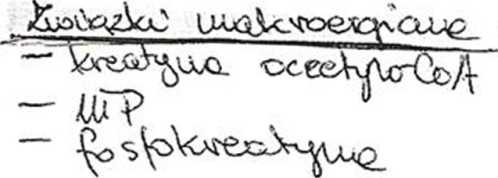 Związki makroergiczne
- kreatyna acetylo-CoA
- 
- fosfokreatyna